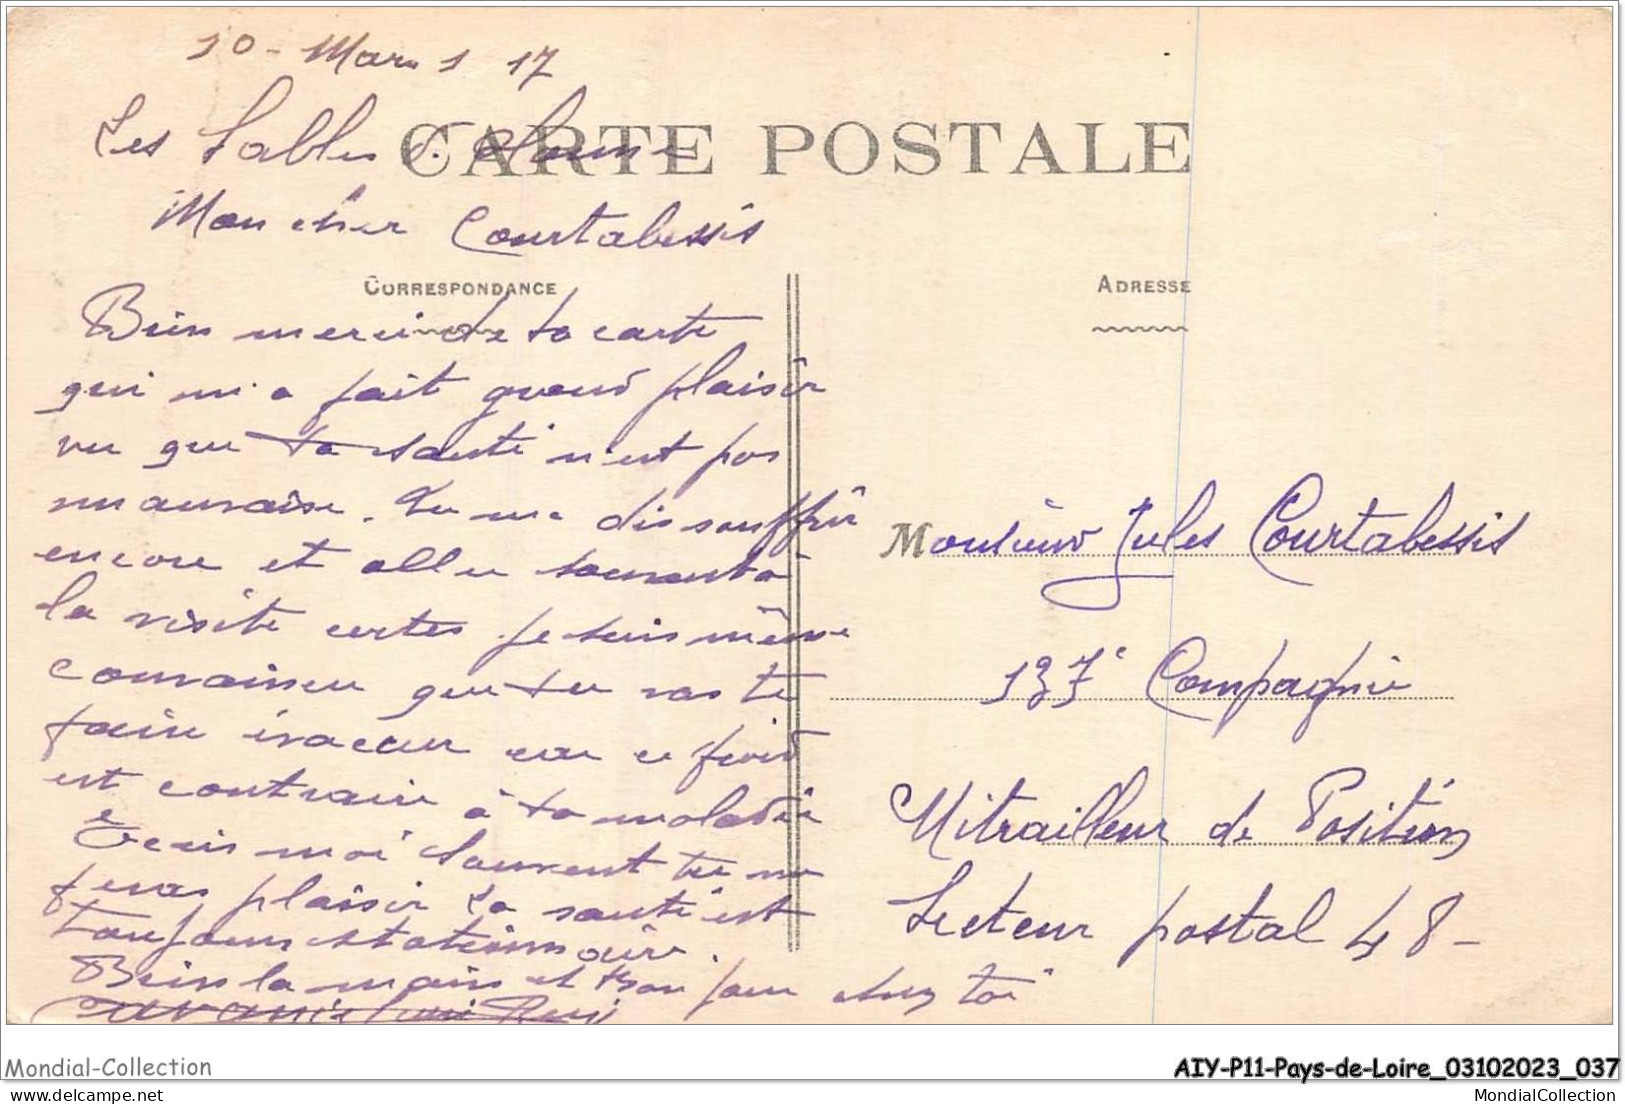 10 - Mars 17
Les Sables d. Olonne
CARTE POSTALE
Mon cher Courtabessis
CORRESPONDANCE
Bien merci de ta carte
qui m'a fait grand plaisir
vu que ta santé n'est pas
mauvaise. Tu me dis souffrir
encore et aller souvent à
la visite certes je suis même
convaincu que tu vas te
faire évacuer car ce froid
est contraire à ta maladie
Écris moi souvent tu me
feras plaisir La santé est
toujours stationnaire.
Bien la main et bonjour chez toi
ADRESSE
Monsieur Jules Courtabessis
137e Compagnie
Mitrailleur de Position
Secteur postal 48-
Mondial-Collection
AIY-P11-Pays-de-Loire_03102023_037
delcampe.net
MondialCollection